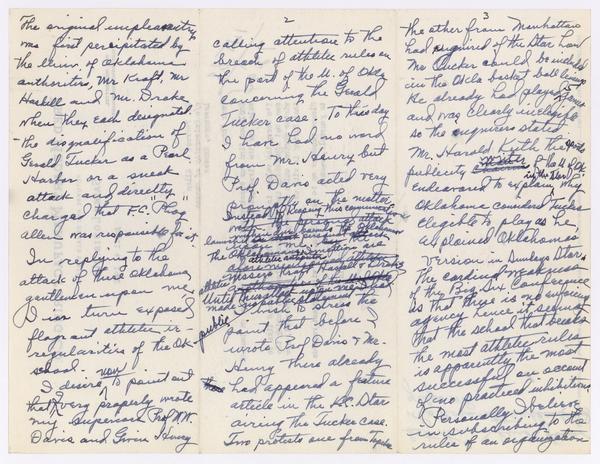 The original unpleasantry
was first percipitated by
the Univ. of Oklahoma
authorities, Mr Kraft, Mr
Haskell and Mr. Drake
when they each designated
the disqualification of
Gerald Tucker as a Pearl
Harbor or a sneak
attack and directly
charged that F.C. "Phog
Allen was responsible for it.
In replying to the
attack of these Oklahoma
gentlemen upon me
I in turn exposed
flagrant athletic ir-
regularities of the Ok-
school.
I desire now to point out
that I very properly wrote
my superiors Prof. W.W.
Davis and Gwin Henry
2
calling attention to the
breach of athletic rules on
the part of the U. of Okla
concerning the Gerald
Tucker case. To this day
I have had no word
from Mr. Henry but
Prof. Davis acted very
promptly on the matter.
Instead of keeping this
Kraft Haskell &
Until
made
public
I wish to stress the
point that before I
wrote Prof Davis & Mr.
Henry there already
had appeared a feature
article in the K.C. Star
airing the Tucker case.
Two protests one from Topeka
3
the other from Manhattan
had inquired of the Star how
Mr Tucker could be included
in the Okla basket ball lineup.
He already had played games
and was clearly ineligible
so the enquirers stated.
Mr. Harold Keith the sports
publicity writer of the U of Ok
endeavored to explain in the Star why
Oklahoma considered Tucker
eligible to play as he,
explained Oklahoma's
version in Sundays Star.
The cardinal weakness
of the Big Six Conference
is that there is no enforcing
agency hence it seems
that the school that breaks
the most athletic rules
is apparently the most
successful on account
of no practiced inhibitions.
Personally I believe
in subscribing to the
rules of an organization